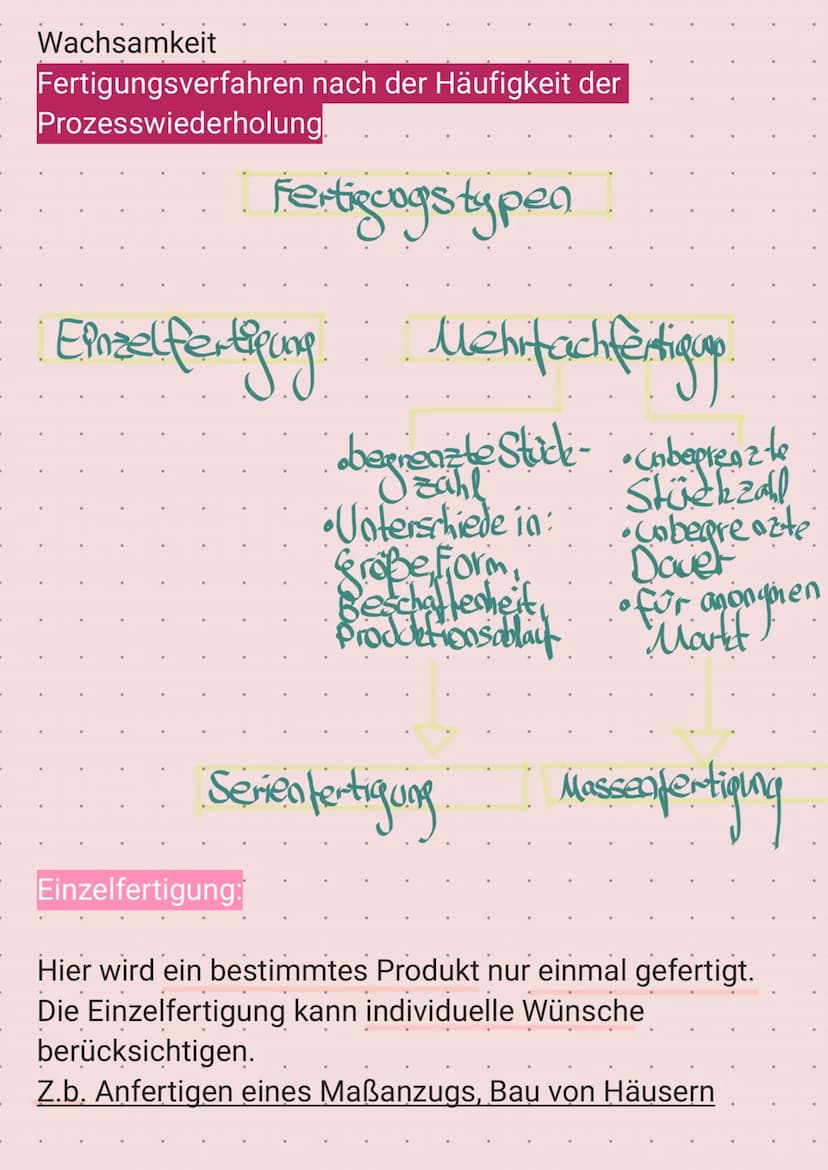 Wachsamkeit
Fertigungsverfahren nach der Häufigkeit der
Prozesswiederholung
Fertigungstypen
Einzelfertigung
Mehrfachfertigung
• begrenzte Stück-
zahl
• Unterschiede in:
Größe, Form,
Beschaffenheit,
Produktionsablauf
• unbegrenzte
Stückzahl
• unbegrenzte
Dauer
• für anonymen
Markt
Serienfertigung
Massenfertigung
Einzelfertigung:
Hier wird ein bestimmtes Produkt nur einmal gefertigt.
Die Einzelfertigung kann individuelle Wünsche
berücksichtigen.
Z.b. Anfertigen eines Maßanzugs, Bau von Häusern